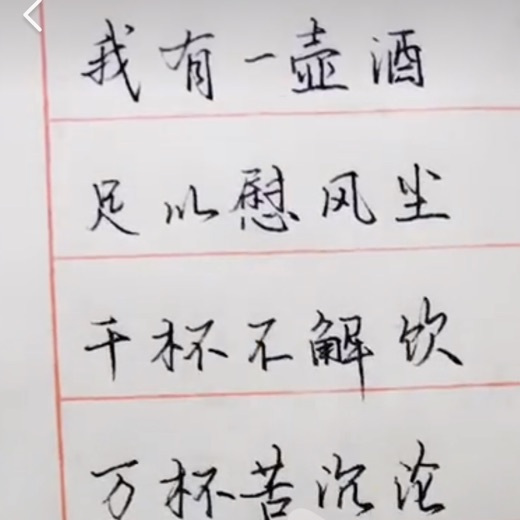 我有一壶酒
足以慰风尘
千杯不解饮
万杯苦沉沦